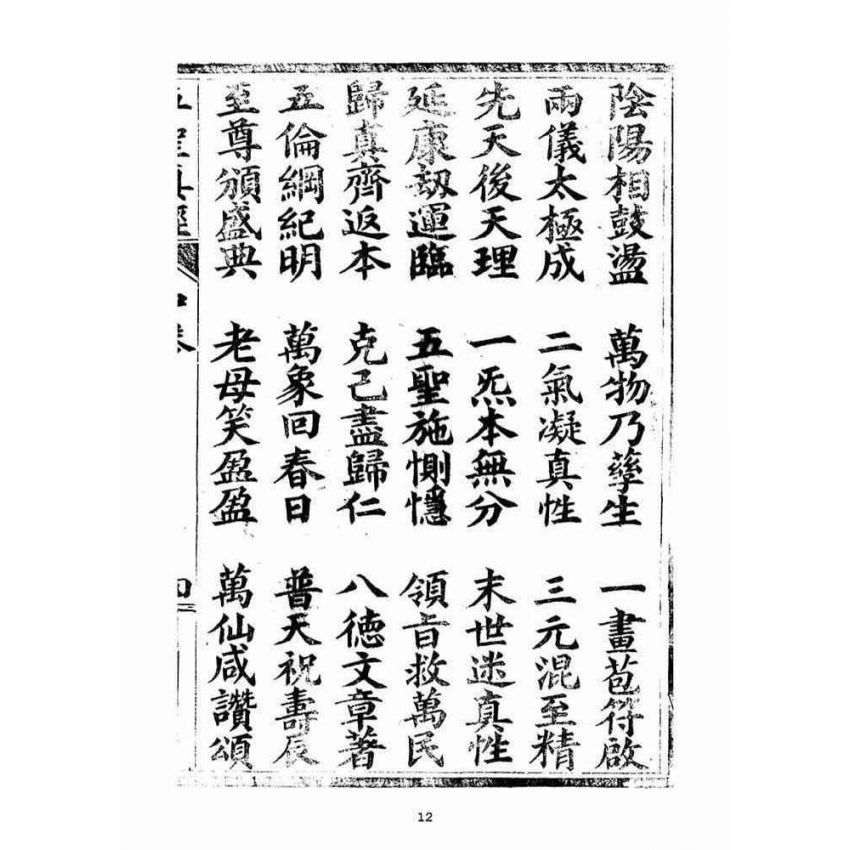 陰陽相鼓盪 萬物乃孳生 一畫苞符啟
兩儀太極成 二氣凝真性 三元混至精
先天後天理 一炁本無分 末世迷真性
延康劫運臨 五聖施惻隱 領旨救萬民
歸真齊返本 克己盡歸仁 八德文章著
五倫綱紀明 萬象回春日 普天祝壽辰
至尊頒盛典 老母笑盈盈 萬仙咸讚頌
12